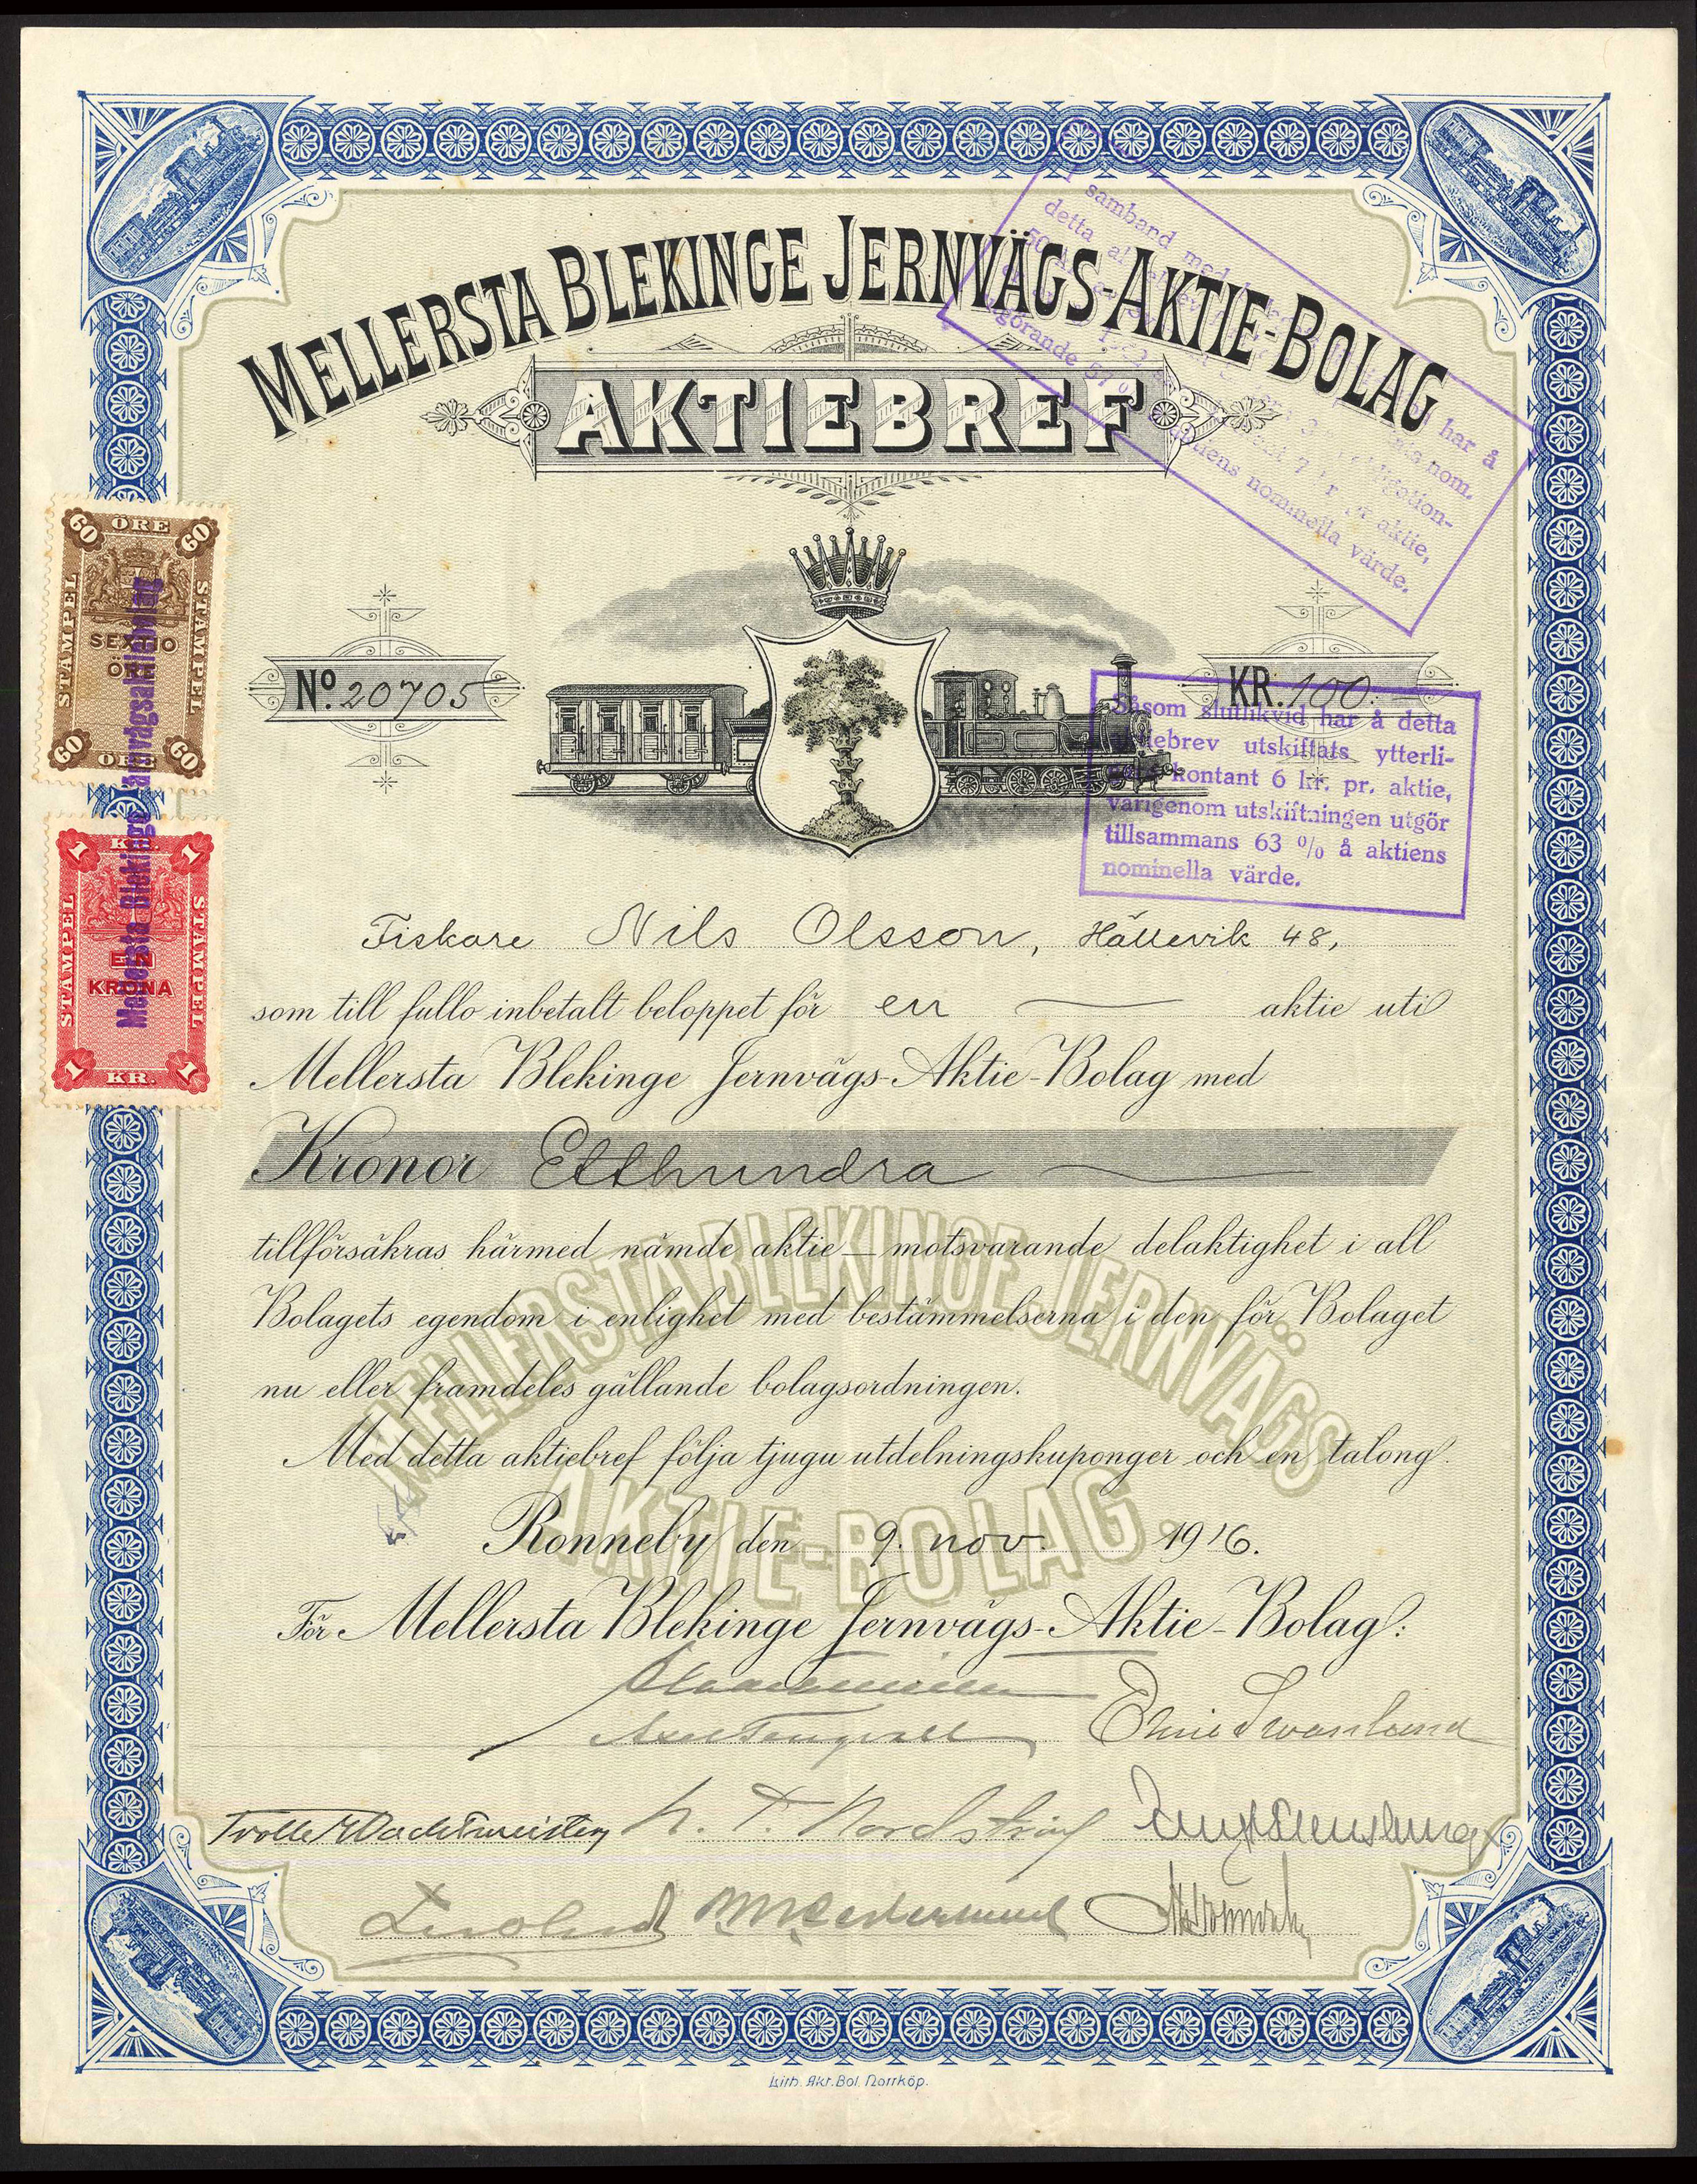 MELLERSTA BLEKINGE JERNVÄGS-AKTIE-BOLAG
AKTIEBREF
samband med har å
detta nom.
gation-
aktie,
utgörande 57 % aktiens nominella värde.
60 ÖRE 60
STÄMPEL STÄMPEL
SEXTIO
ÖRE
60 ÖRE 60
Mellersta Blekinge Järnvägsaktiebolag
1 KR. 1
STÄMPEL STÄMPEL
EN
KRONA
1 KR. 1
No. 20705
KR. 100.
Såsom slutlikvid har å detta
aktiebrev utskiftats ytterli-
kontant 6 kr. pr. aktie,
varigenom utskiftningen utgör
tillsammans 63 % å aktiens
nominella värde.
Fiskare Nils Olsson, Hällevik 48,
som till fullo inbetalt beloppet för en aktie uti
Mellersta Blekinge Jernvägs-Aktie-Bolag med
Kronor Etthundra
tillförsäkras härmed nämde aktie motsvarande delaktighet i all
Bolagets egendom i enlighet med bestämmelserna i den för Bolaget
nu eller framdeles gällande bolagsordningen.
Med detta aktiebref följa tjugu utdelningskuponger och en talong.
MELLERSTA BLEKINGE JERNVÄGS
AKTIE-BOLAG.
Ronneby den 9. nov. 1916.
För Mellersta Blekinge Jernvägs-Aktie-Bolag:
Axel Tengvall Swanlund
Trolle Wachtmeister N. T. Nordström
Lith. Akt. Bol. Norrköp.